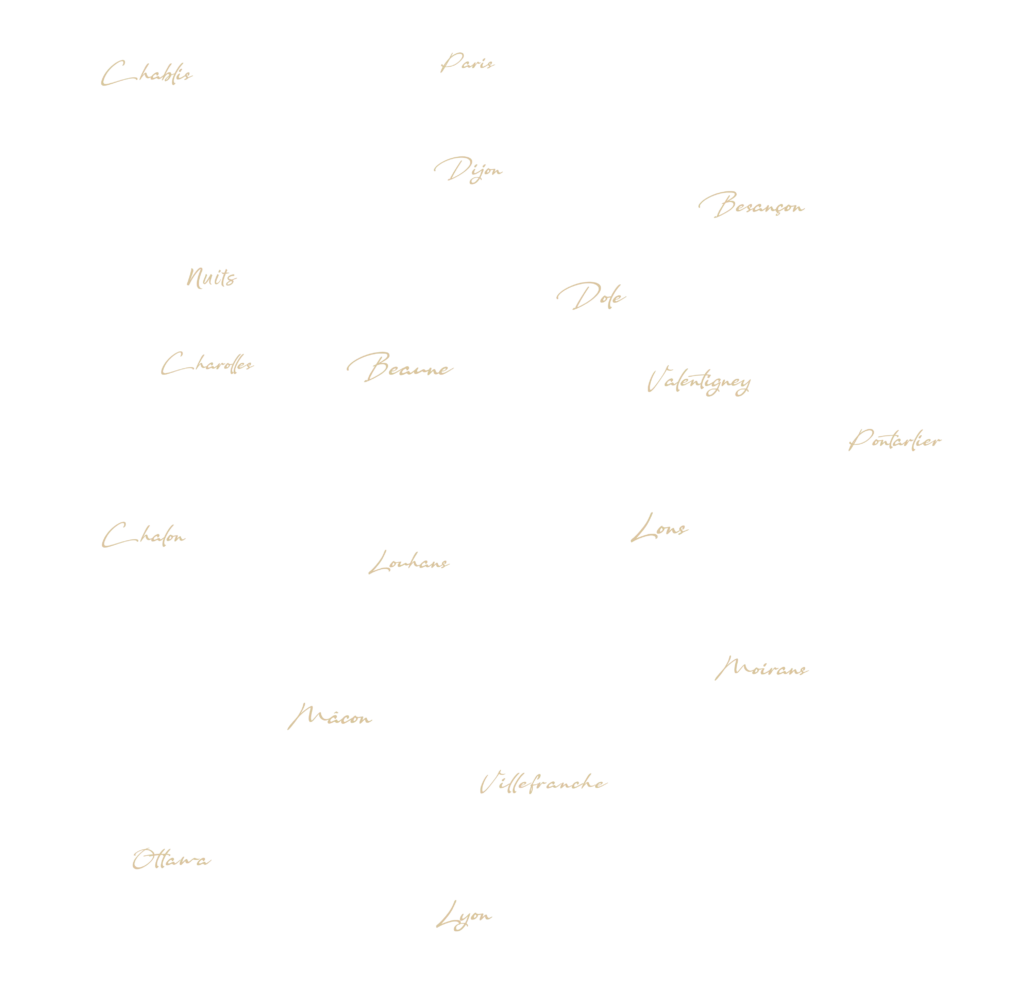 Chablis
Paris
Dijon
Besançon
Nuits
Dole
Charolles
Beaune
Valentigney
Pontarlier
Chalon
Louhans
Lons
Moirans
Mâcon
Villefranche
Ottawa
Lyon